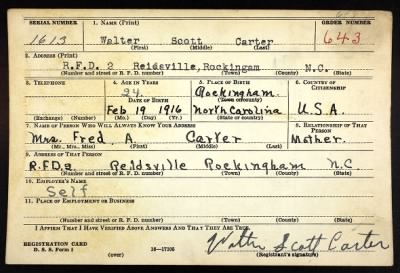 SERIAL NUMBER 1. NAME (Print) ORDER NUMBER
1613 Walter Scott Carter 643
(First) (Middle) (Last)
2. ADDRESS (Print)
R.F.D. 2 Reidsville, Rockingam N.C.
(Number and street or R. F. D. number) (Town) (County) (State)
3. TELEPHONE 4. AGE IN YEARS 5. PLACE OF BIRTH 6. COUNTRY OF CITIZENSHIP
24. Rockingham.
DATE OF BIRTH (Town or county)
Feb 19 1916 North Carolina U.S.A.
(Exchange) (Number) (Mo.) (Day) (Yr.) (State or country)
7. NAME OF PERSON WHO WILL ALWAYS KNOW YOUR ADDRESS 8. RELATIONSHIP OF THAT PERSON
Mrs. Fred A. Carter Mother.
(Mr., Mrs., Miss) (First) (Middle) (Last)
9. ADDRESS OF THAT PERSON
R.F.D. 2 Reidsville Rockingham N.C
(Number and street or R. F. D. number) (Town) (County) (State)
10. EMPLOYER'S NAME
Self
11. PLACE OF EMPLOYMENT OR BUSINESS
(Number and street or R. F. D. number) (Town) (County) (State)
I AFFIRM THAT I HAVE VERIFIED ABOVE ANSWERS AND THAT THEY ARE TRUE.
REGISTRATION CARD
D. S. S. Form 1 16—17105 Walter Scott Carter
(Registrant's signature)